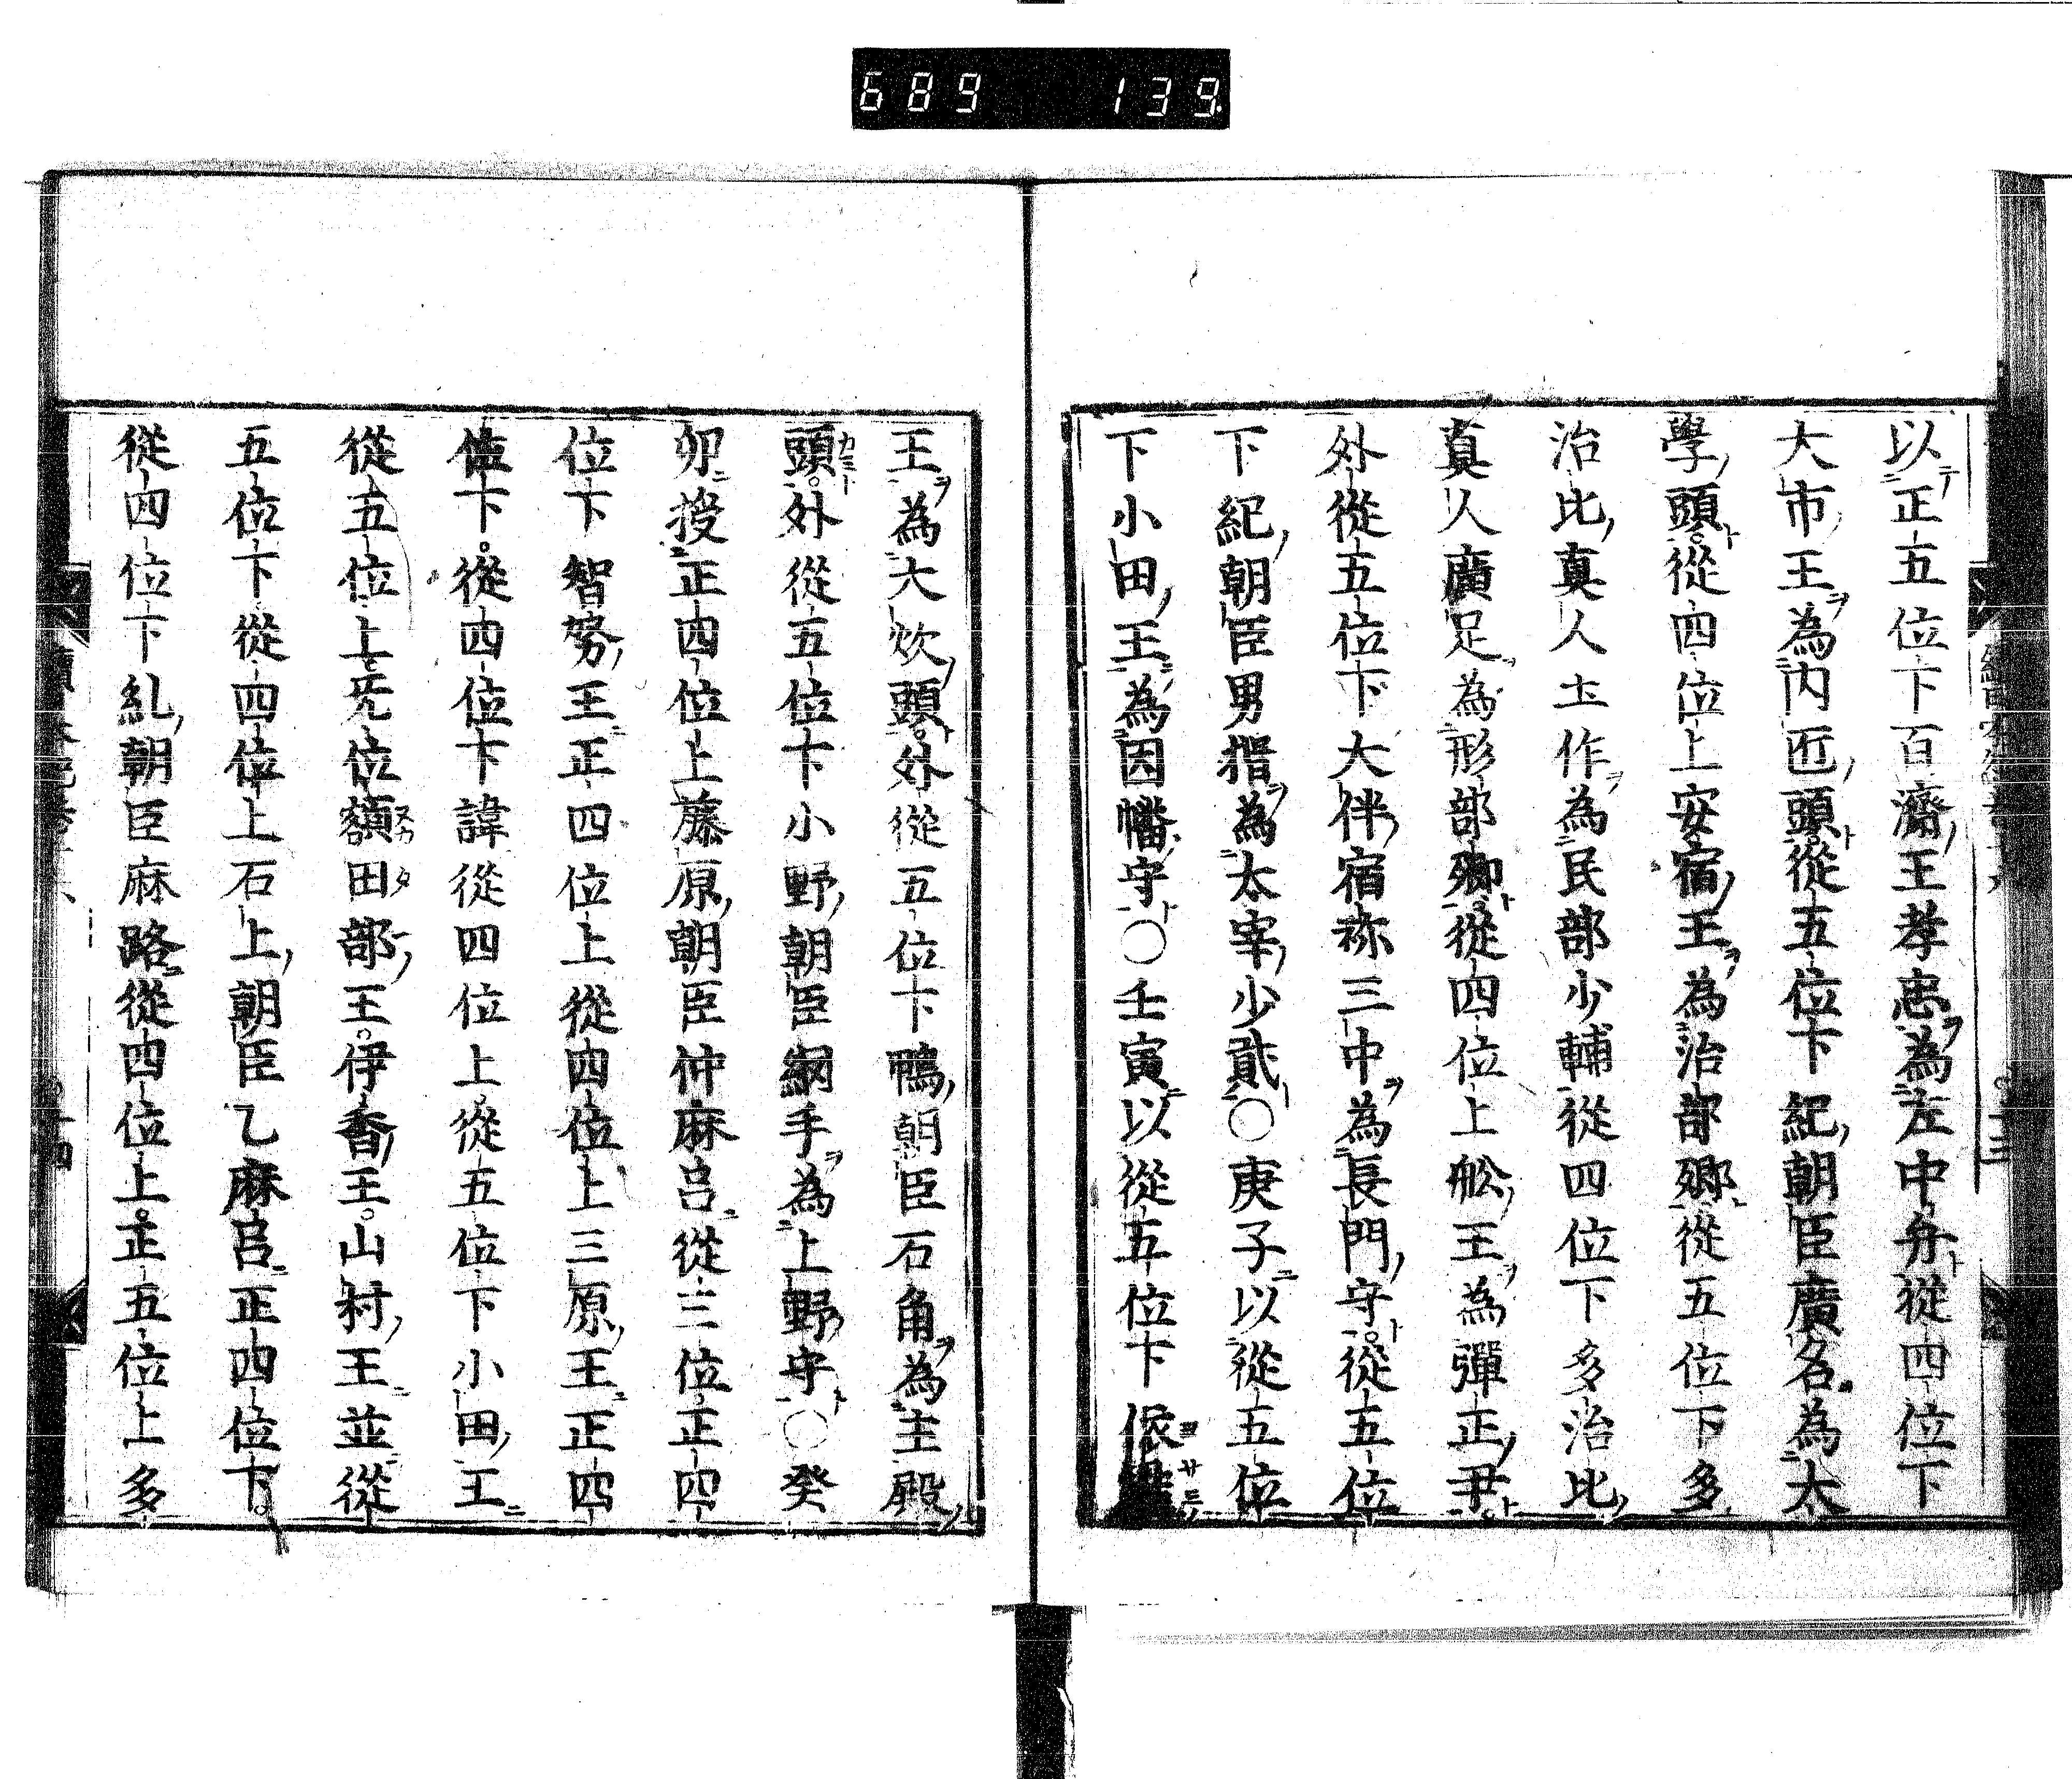 689 139
以正五位下百濟王孝忠為左中弁從四位下
大市王為內匠頭從五位下紀朝臣廣名為太
學頭從四位上安宿王為治部卿從五位下多
治比真人土作為民部少輔從四位下多治比
真人廣足為形部卿從四位上舩王為彈正尹
外從五位下大伴宿祢三中為長門守從五位
下紀朝臣男揩為太宰少貳○庚子以從五位
下小田王為因幡守○壬寅以從五位下依
王為大炊頭外從五位下鴨朝臣石角為主殿
頭外從五位下小野朝臣綱手為上野守○癸
卯授正四位上藤原朝臣仲麻呂從三位正四
位下智努王正四位上從四位上三原王正四
位下從四位下諱從四位上從五位下小田王
從五位上无位額田部王伊香王山村王並從
五位下從四位上石上朝臣乙麻呂正四位下
從四位下紀朝臣麻路從四位上正五位上多